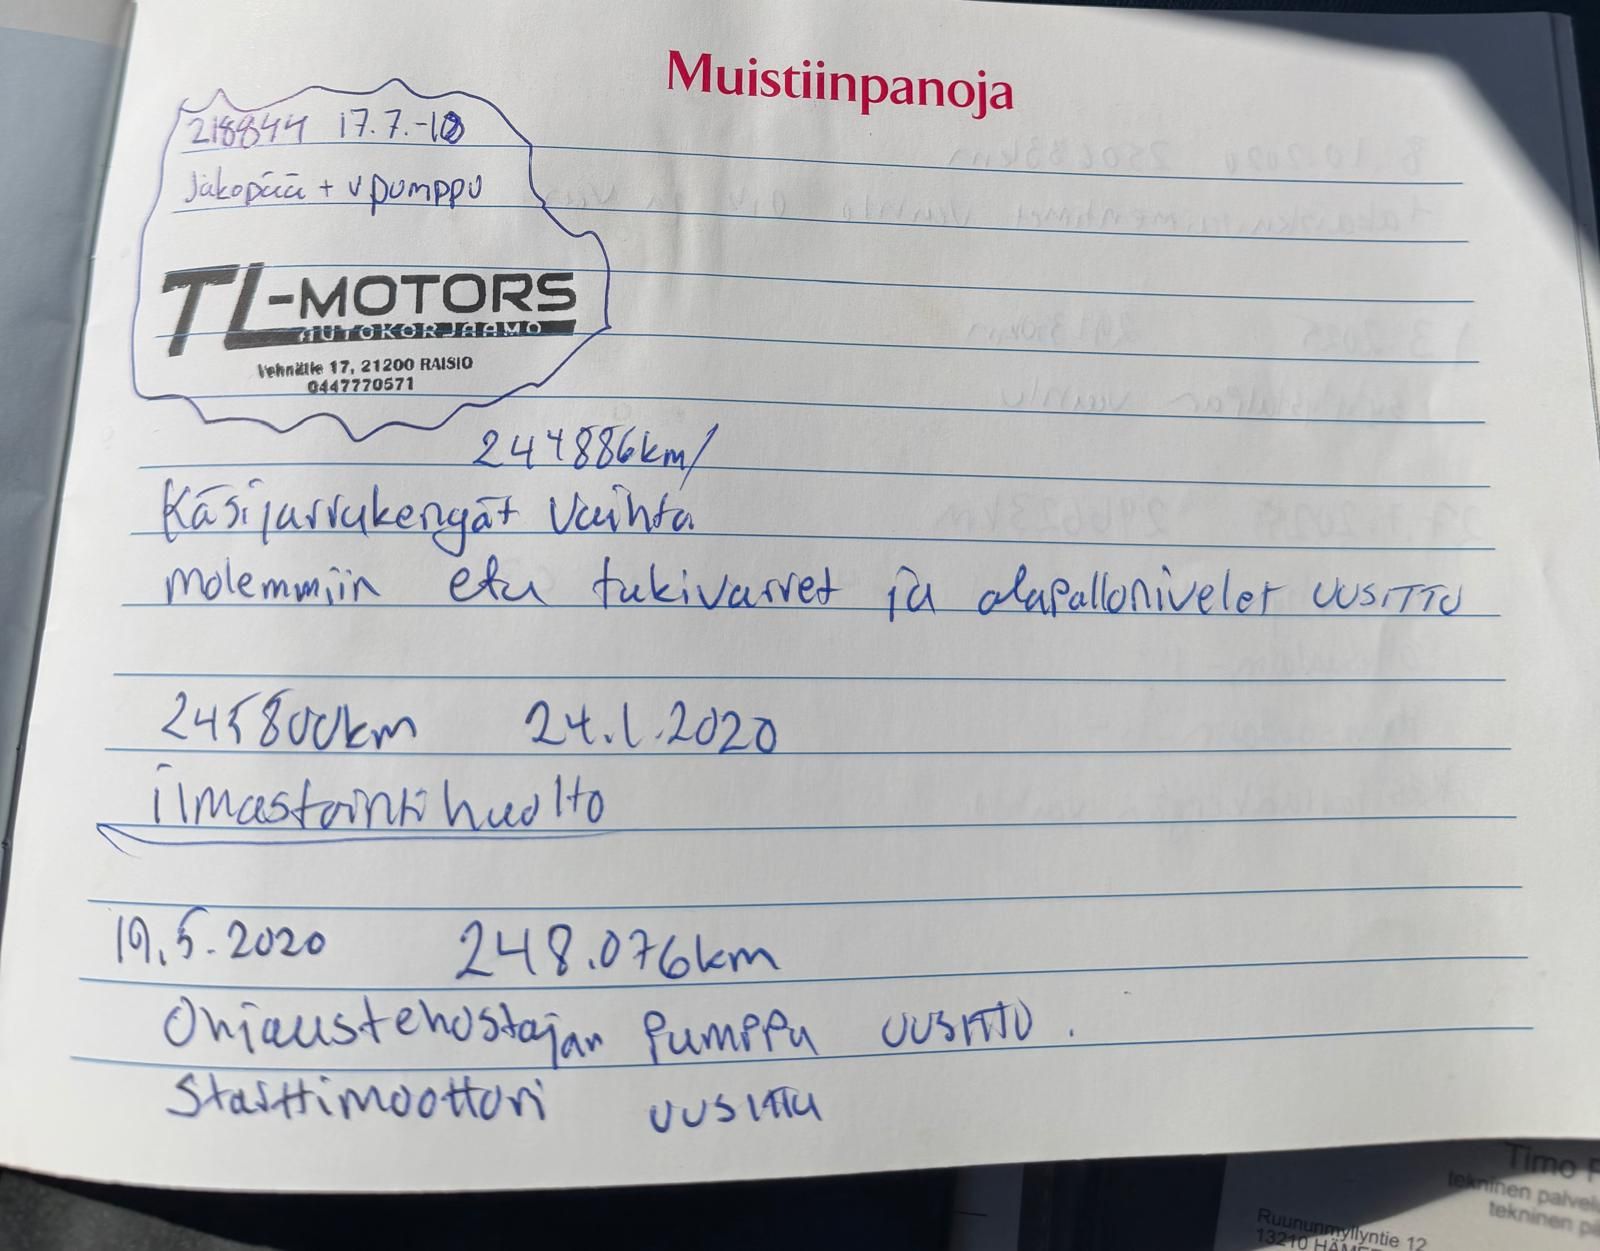 Muistiinpanoja
218844 17.7.-18
Jakopää + v pumppu
TL-MOTORS
AUTOKORJAAMO
Vehnätie 17, 21200 RAISIO
0447770571
244886km/
Käsijarrukengät vaihto
molemmiin etu tukivarret ja alapallonivelet UUSITTU
245800km 24.1.2020
ilmastointihuolto
19.5.2020 248.076km
Ohjaustehostajan pumppu UUSITTU.
Starttimoottori UUSITTU
Timo
tekninen
tekninen
Ruununmyllyntie 12
13210